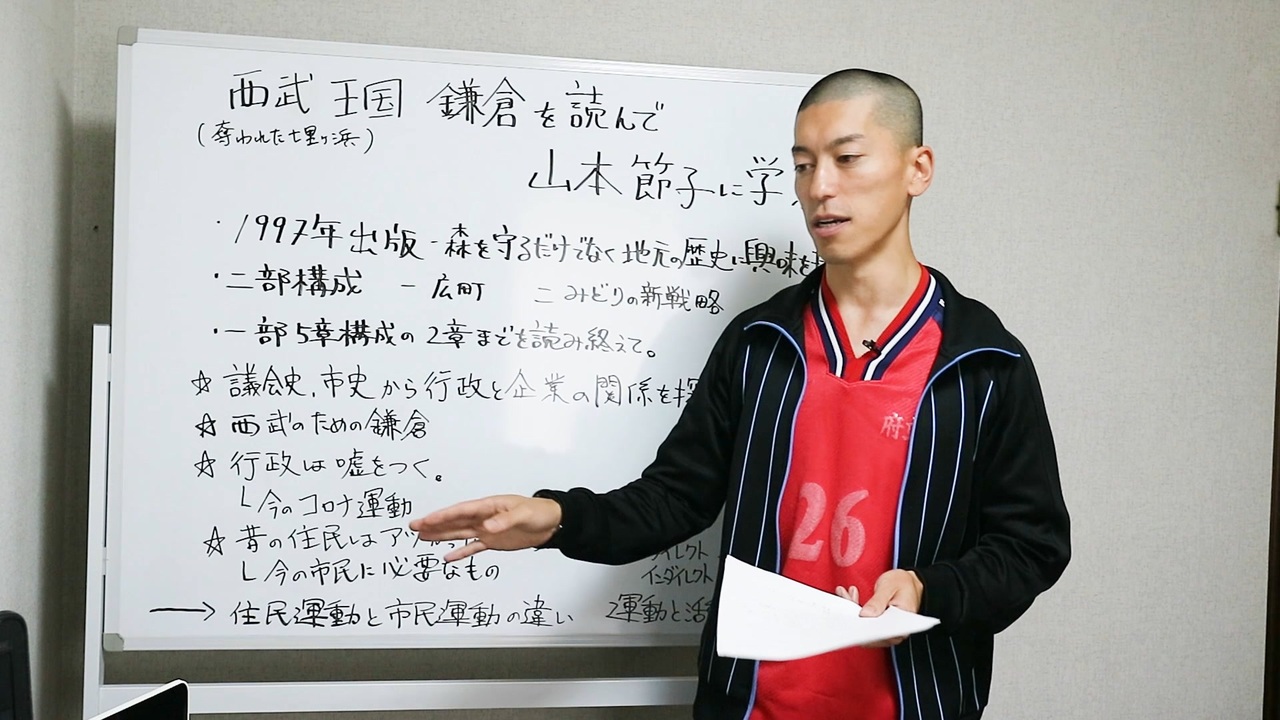 西武 王国 鎌倉を読んで
(奪われた七里ヶ浜)
山本節子に学
・1997年出版 - 森を守るだけでなく地元の歴史に興味を
・二部構成 一 広町 二 みどりの新戦略
・一部5章構成の2章までを読み終えて。
☆ 議会史、市史から行政と企業の関係を探
☆ 西武のための鎌倉
☆ 行政は嘘をつく。
└ 今のコロナ運動
☆ 昔の住民はアツ
ダイレクト
└ 今の市民に必要なもの
インダイレクト
→ 住民運動と市民運動の違い 運動と活
府
26